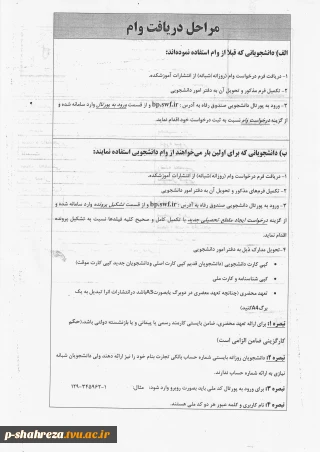 مراحل دریافت وام
الف) دانشجویانی که قبلا از وام استفاده نموده‌اند:
۱- دریافت فرم درخواست وام (روزانه/شبانه) از انتشارات آموزشکده.
۲- تکمیل فرم مذکور و تحویل آن به دفتر امور دانشجویی
۳- ورود به پورتال دانشجویی صندوق رفاه به آدرس: bp.swf.ir و از قسمت ورود به پورتال وارد سامانه شده و
از گزینه درخواست وام نسبت به ثبت درخواست خود اقدام نماید.
ب) دانشجویانی که برای اولین بار می‌خواهند از وام دانشجویی استفاده نمایند:
۱- دریافت فرم درخواست وام (روزانه/شبانه) از انتشارات آموزشکده.
۲- تکمیل فرم‌های مذکور و تحویل آن به دفتر امور دانشجویی
۳- ورود به پورتال دانشجویی صندوق رفاه به آدرس: bp.swf.ir و از قسمت تشکیل پرونده وارد سامانه شده و
از گزینه درخواست ایجاد مقطع تحصیلی جدید با تکمیل کامل و صحیح کلیه فیلدها نسبت به تشکیل پرونده
اقدام نماید.
۴- تحویل مدارک ذیل به دفتر امور دانشجویی
• کپی کارت دانشجویی (دانشجویان قدیم کپی کارت اصلی ودانشجویان جدید کپی کارت موقت)
• کپی شناسنامه و کارت ملی
• تعهد محضری (چنانچه تعهد محضری در دوبرگ بصورت A5 باشد درانتشارات آنرا تبدیل به یک
برگ A4 کنید)
تبصره ۱: برای ارائه تعهد محضری، ضامن بایستی کارمند رسمی یا پیمانی و یا بازنشسته دولتی باشد. (حکم
کارگزینی ضامن الزامی است)
تبصره ۲: دانشجویان روزانه بایستی شماره حساب بانکی تجارت بنام خود را نیز ارائه دهند ولی دانشجویان شبانه
نیازی به ارائه شماره حساب ندارند.
تبصره ۳: برای ورود به پورتال کد ملی باید بصورت روبرو وارد شود: مثال: ۱-۳۴۵۹۶۲-۱۲۹
تبصره ۴: نام کاربری و کلمه عبور هر دو کد ملی هستند.
p-shahreza.tvu.ac.ir